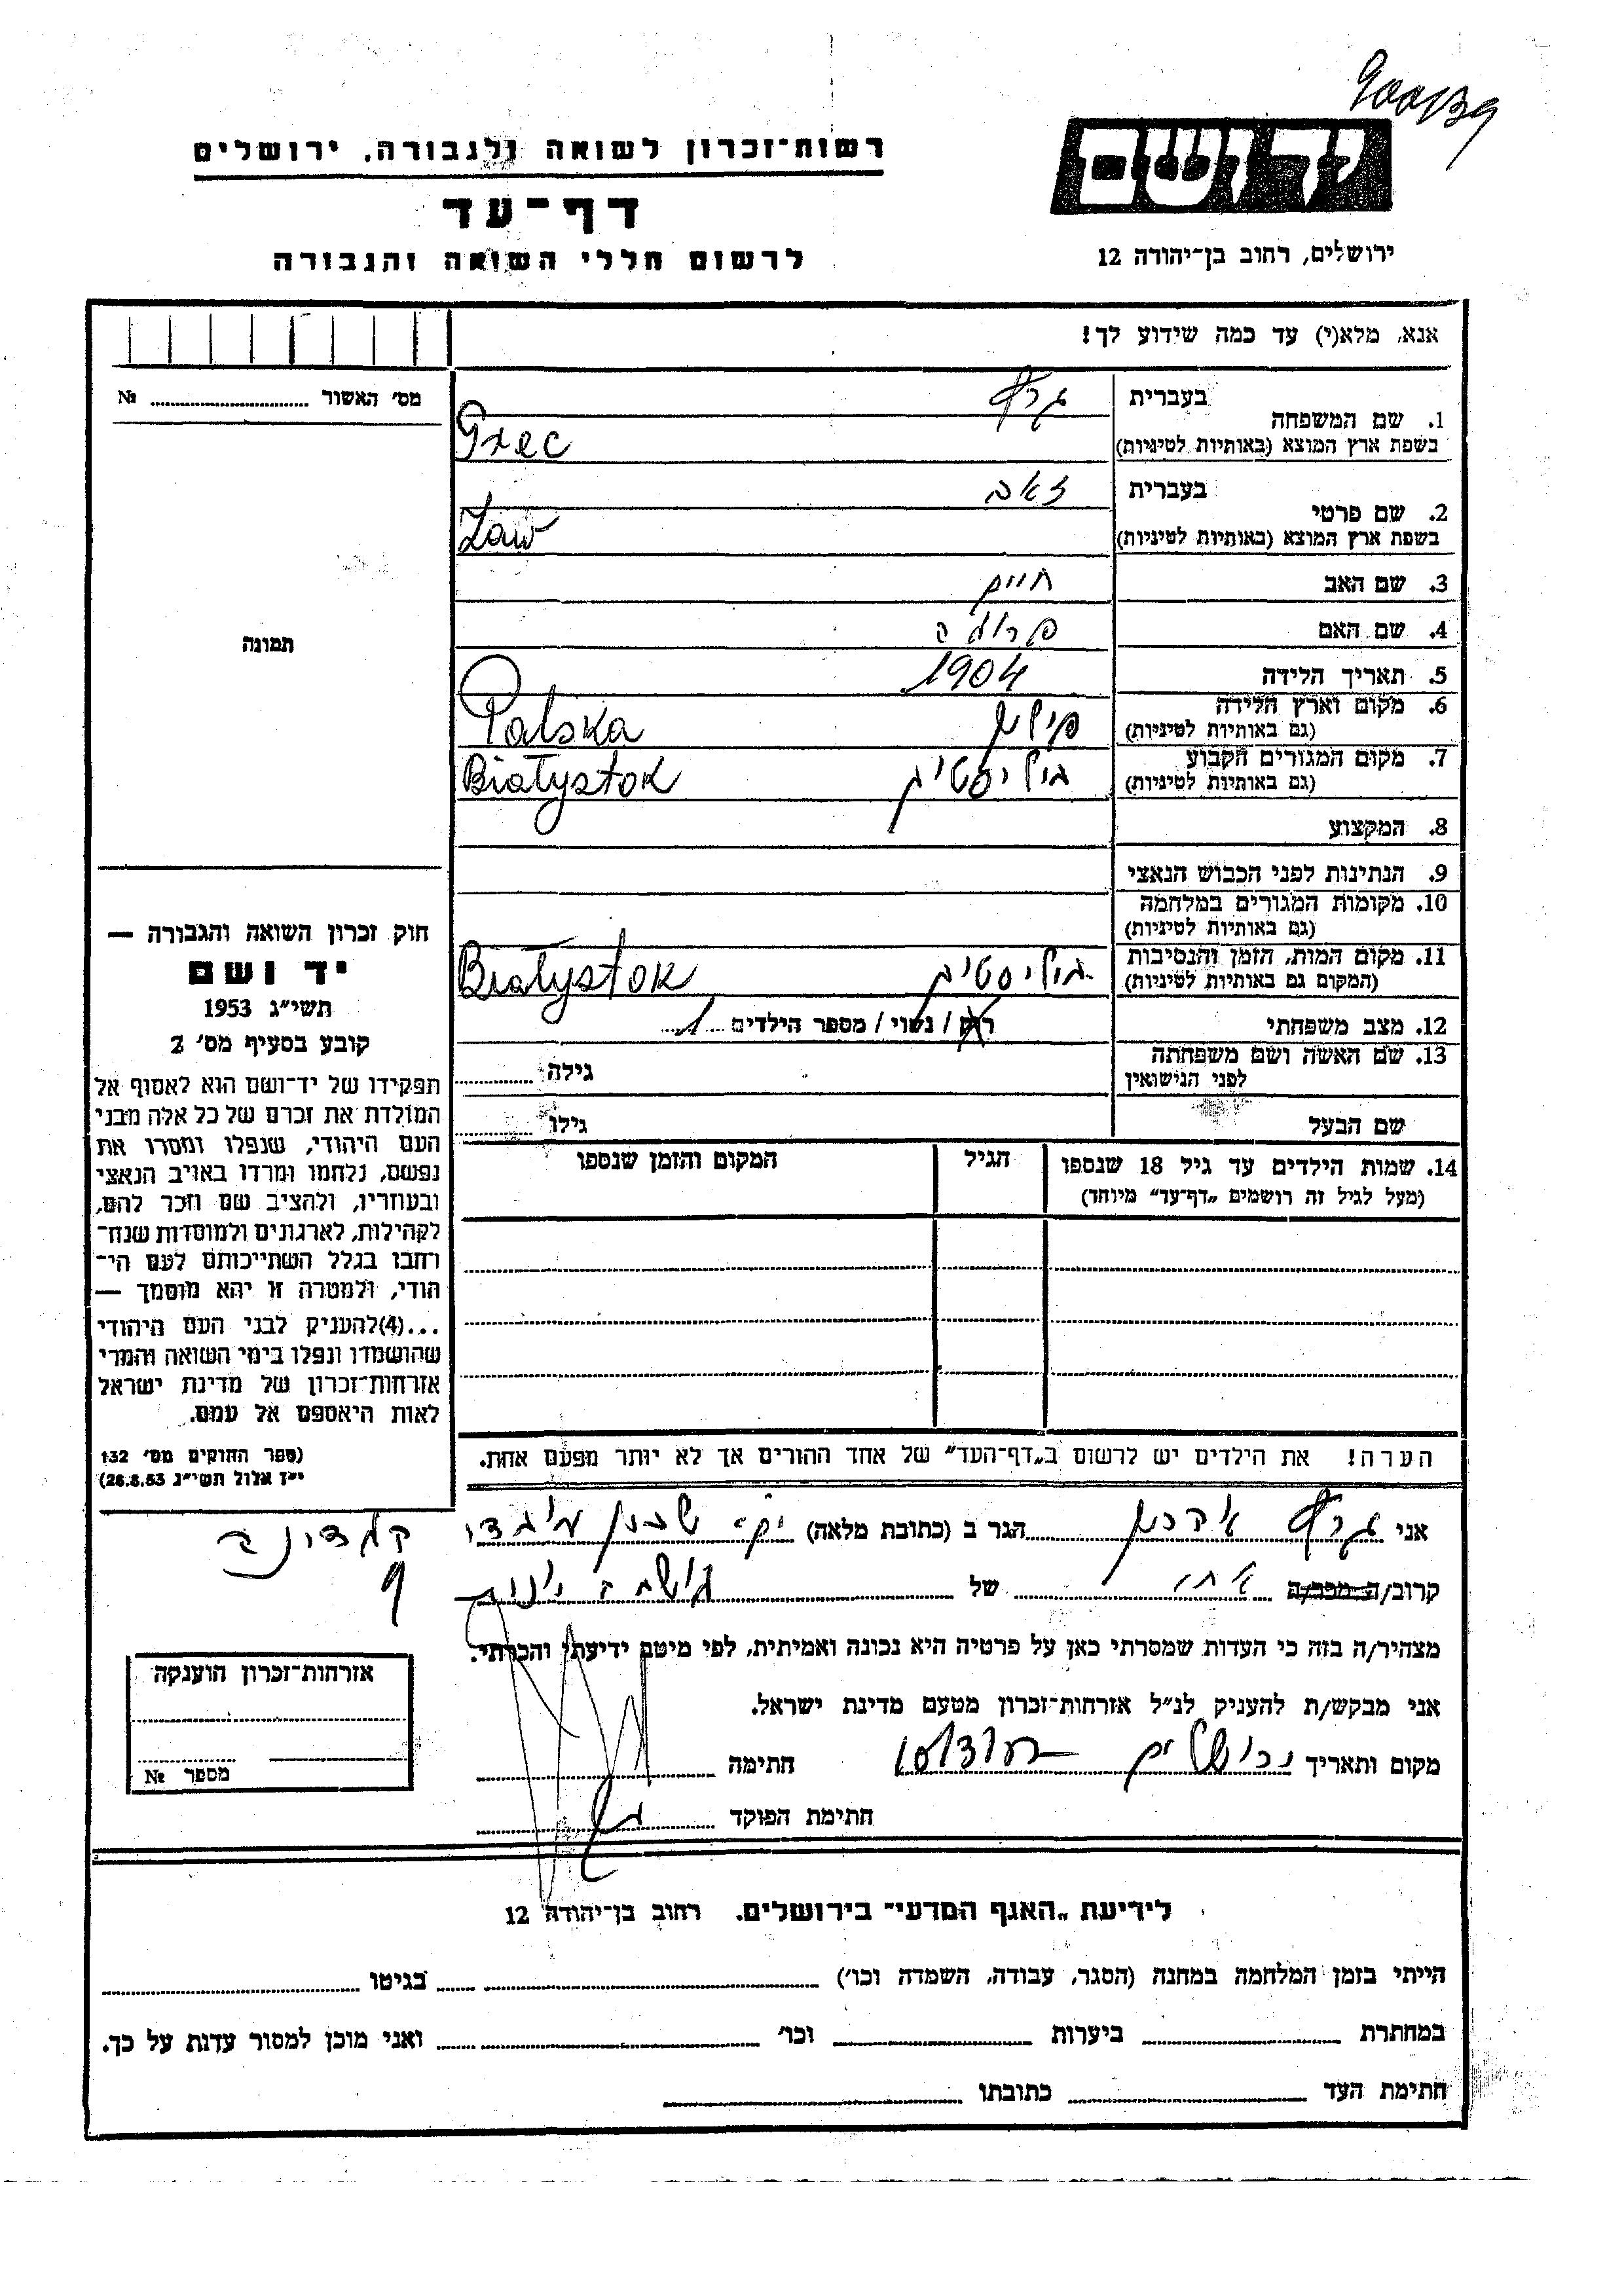 רשות־זכרון לשואה ולגבורה, ירושלים
דף־עד
לרשום חללי השואה והגבורה
יד ושם
ירושלים, רחוב בן־יהודה 12
אנא, מלא(י) עד כמה שידוע לך!
מס׳ האשור № 
1. שם המשפחה
בעברית
בשפת ארץ המוצא (באותיות לטיניות)
2. שם פרטי
בעברית זאב
בשפת ארץ המוצא (באותיות לטיניות) Zaw
3. שם האב חיים
4. שם האם
5. תאריך הלידה 1904
6. מקום וארץ הלידה
(גם באותיות לטיניות) פולין Polska
7. מקום המגורים הקבוע
(גם באותיות לטיניות) ביליסטוק Białystok
8. המקצוע
9. הנתינות לפני הכבוש הנאצי
10. מקומות המגורים במלחמה
(גם באותיות לטיניות)
11. מקום המות, הזמן והנסיבות
(המקום גם באותיות לטיניות) ביליסטוק Białystok
12. מצב משפחתי רוק / נשוי / מספר הילדים 1
13. שם האשה ושם משפחתה
לפני הנישואין
גילה
שם הבעל
גילו
14. שמות הילדים עד גיל 18 שנספו
(מעל לגיל זה רושמים „דף־עד״ מיוחד)
הגיל
המקום והזמן שנספו
תמונה
חוק זכרון השואה והגבורה —
יד ושם
תשי״ג 1953
קובע בסעיף מס׳ 2
תפקידו של יד־ושם הוא לאסוף אל
המולדת את זכרם של כל אלה מבני
העם היהודי, שנפלו ומסרו את
נפשם, נלחמו ומרדו באויב הנאצי
ובעוזריו, ולהציב שם וזכר להם,
לקהילות, לארגונים ולמוסדות שנח־
רבו בגלל השתייכותם לעם הי־
הודי, ולמטרה זו יהא מוסמך —
...(4)להעניק לבני העם היהודי
שהושמדו ונפלו בימי השואה והמרי
אזרחות־זכרון של מדינת ישראל
לאות היאספם אל עמם.
(ספר החוקים מס׳ 132
י״ז אלול תשי״ג 28.8.53)
הערה! את הילדים יש לרשום ב„דף־העד״ של אחד ההורים אך לא יותר מפעם אחת.
אני הגר ב (כתובת מלאה)
קרוב/ה מכר/ה של
מצהיר/ה בזה כי העדות שמסרתי כאן על פרטיה היא נכונה ואמיתית, לפי מיטב ידיעתי והכרתי.
אני מבקש/ת להעניק לנ״ל אזרחות־זכרון מטעם מדינת ישראל.
מקום ותאריך ירושלים חתימה
חתימת הפוקד
אזרחות־זכרון הוענקה
מספר №
לידיעת „האגף המדעי״ בירושלים. רחוב בן־יהודה 12
הייתי בזמן המלחמה במחנה (הסגר, עבודה, השמדה וכו׳) בגיטו
במחתרת ביערות וכו׳ ואני מוכן למסור עדות על כך.
חתימת העד כתובתו